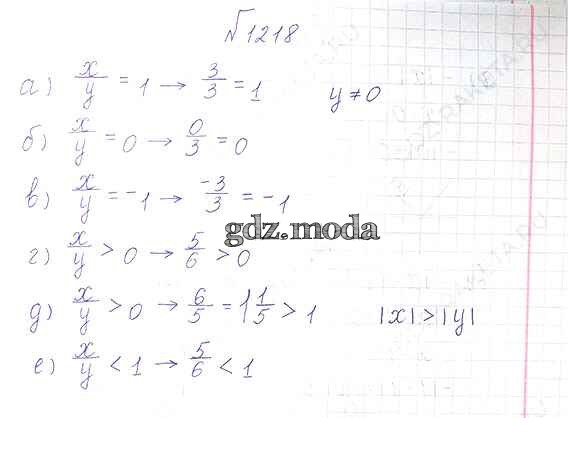 №1218
а) x/y = 1 → 3/3 = 1 y ≠ 0
б) x/y = 0 → 0/3 = 0
в) x/y = -1 → -3/3 = -1
gdz.moda
г) x/y > 0 → 5/6 > 0
д) x/y > 0 → 6/5 = 1 1/5 > 1 |x| > |y|
е) x/y < 1 → 5/6 < 1